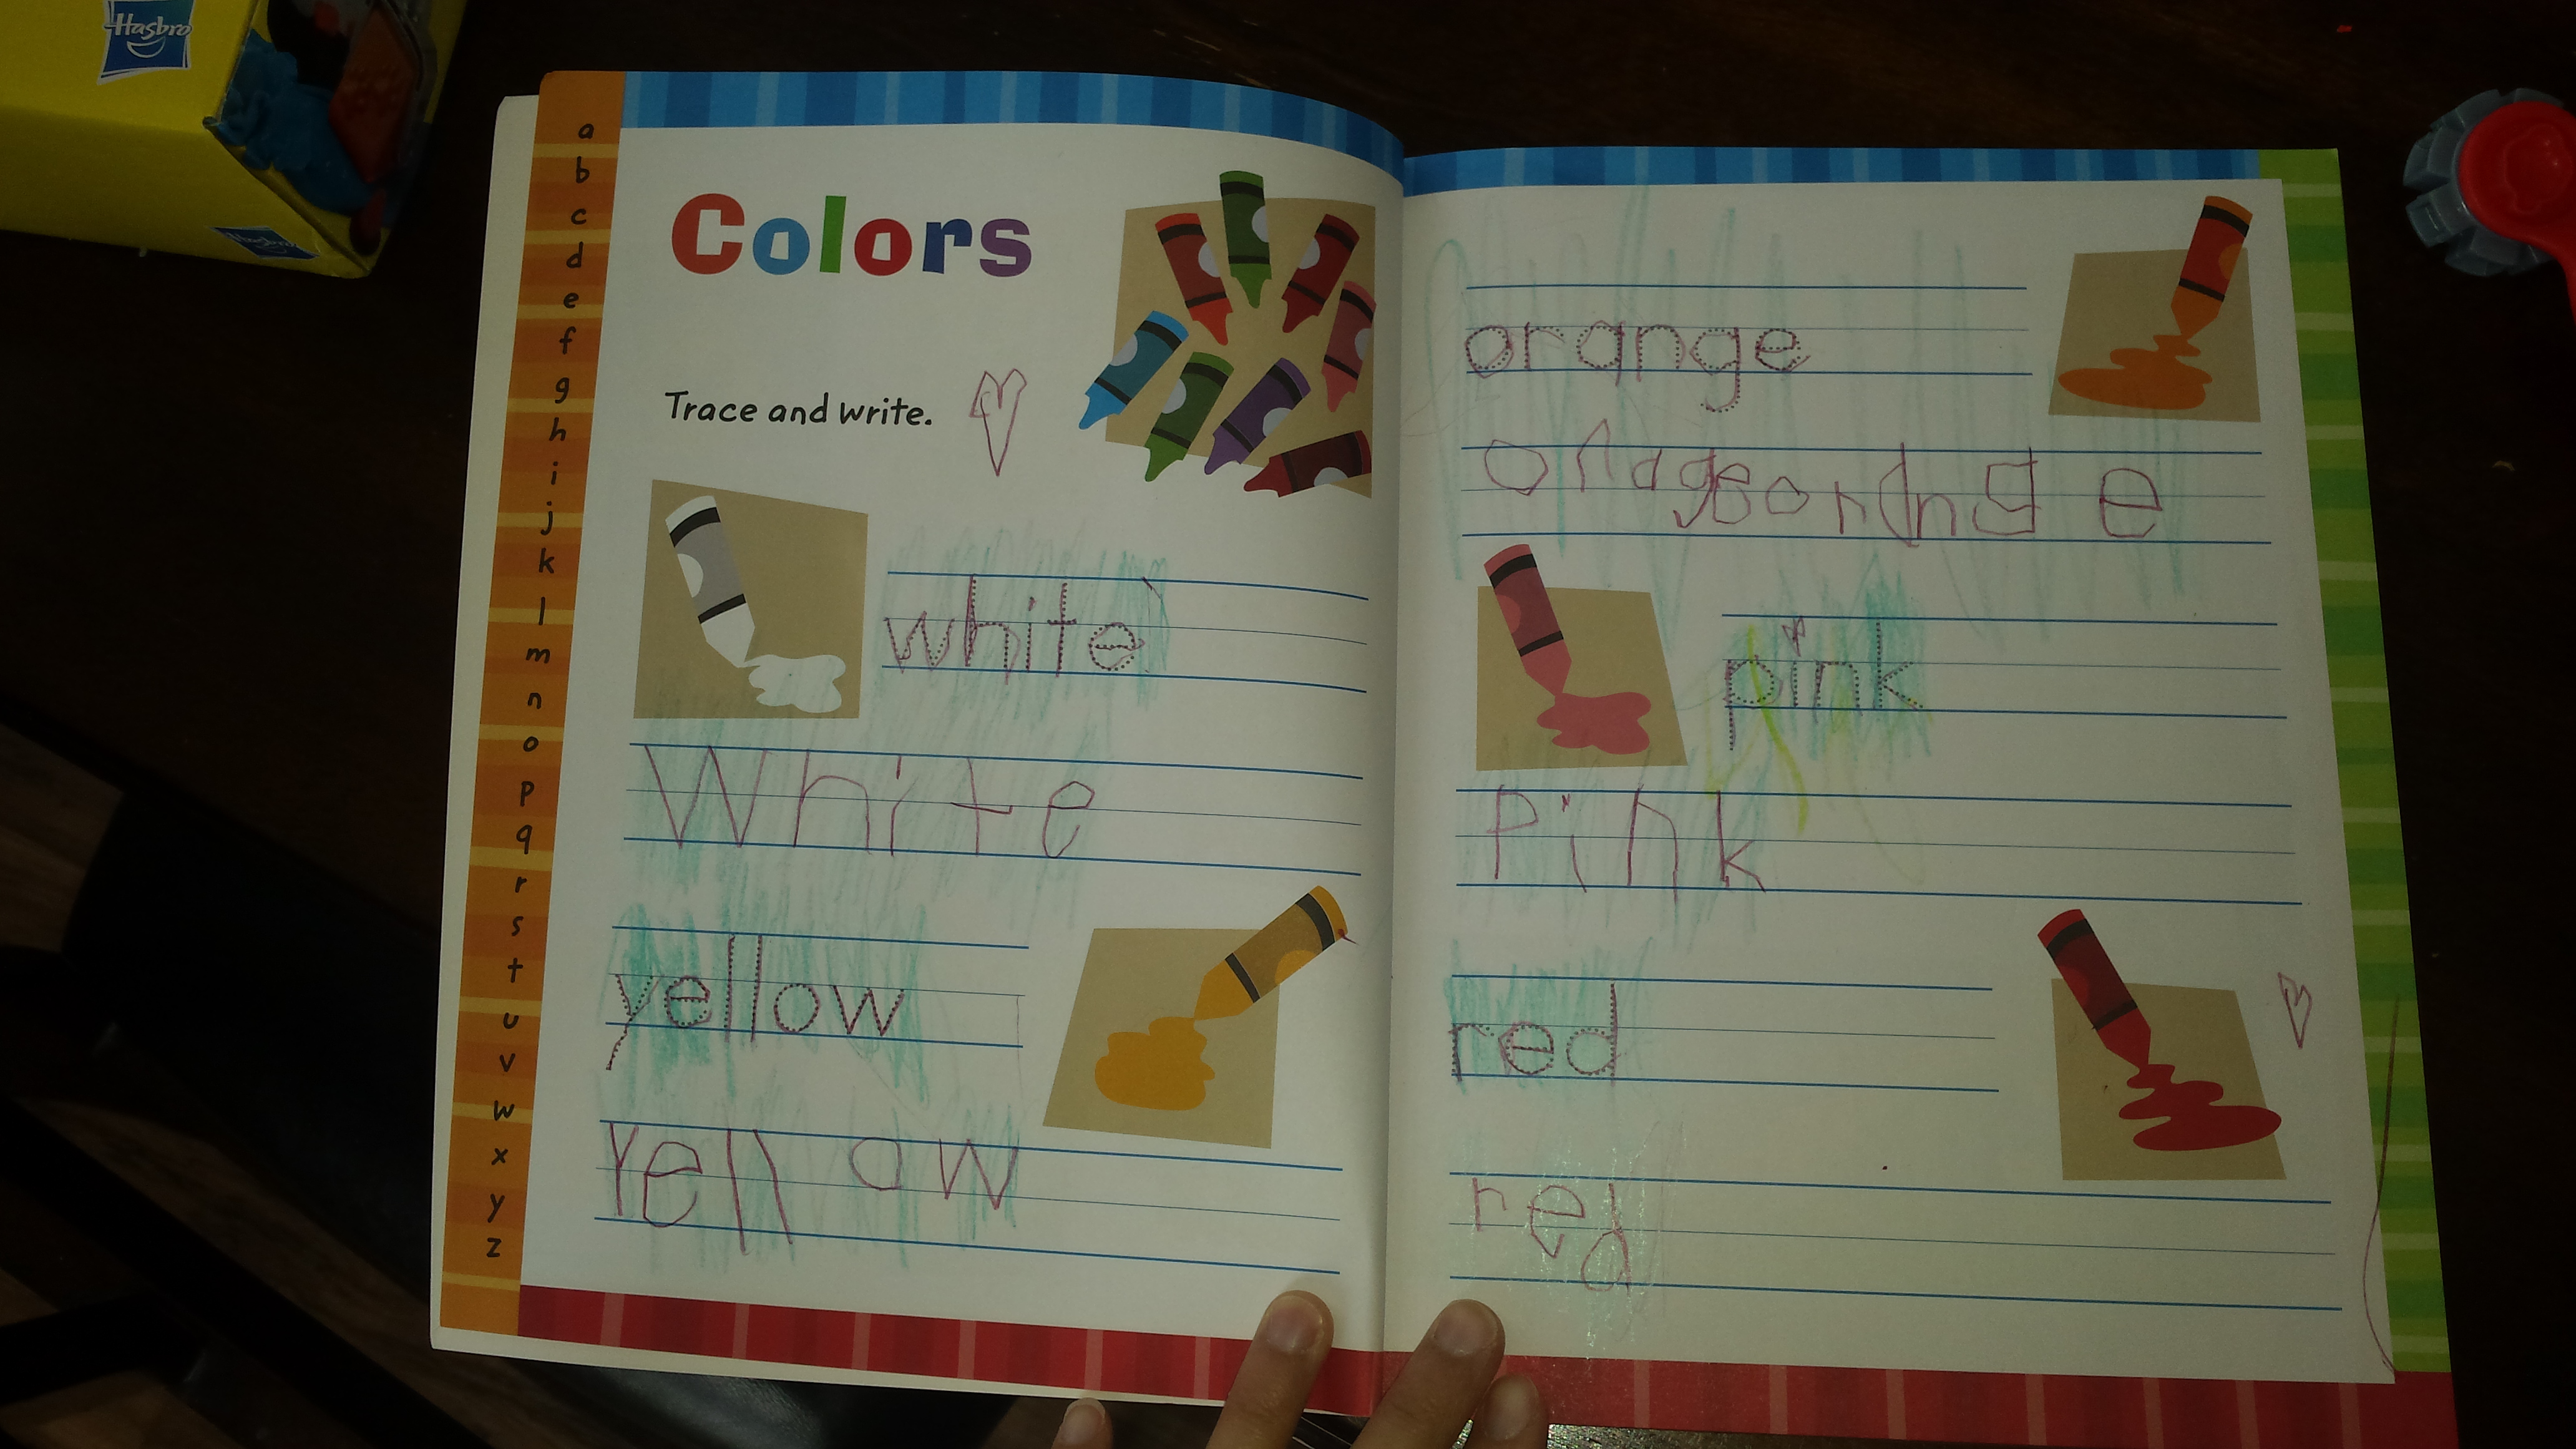 Hasbro
Hasbro
a
b
c
d
e
f
g
h
i
j
k
l
m
n
o
p
q
r
s
t
u
v
w
x
y
z
Colors
Trace and write.
white
White
yellow
Yellow
orange
orageorange
pink
Pink
red
red